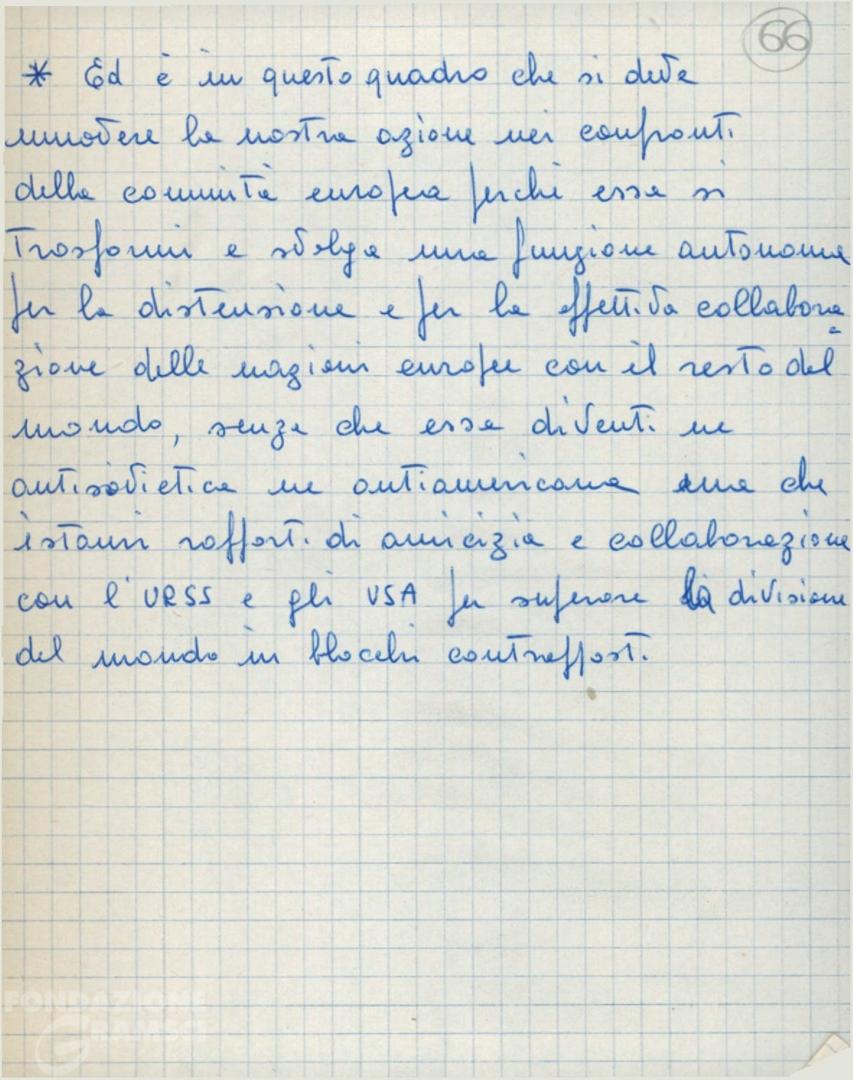 66
* Ed è in questo quadro che si deve
muovere la nostra azione nei confronti
della comunità europea perché essa si
trasformi e svolga una funzione autonoma
per la distensione e per la effettiva collabora
zione delle nazioni europee con il resto del
mondo, senza che essa diventi ne
antisovietica ne antiamericana ma che
istauri rapporti di amicizia e collaborazione
con l'URSS e gli USA per superare la divisione
del mondo in blocchi contrapposti.
FONDAZIONE
GRAMSCI